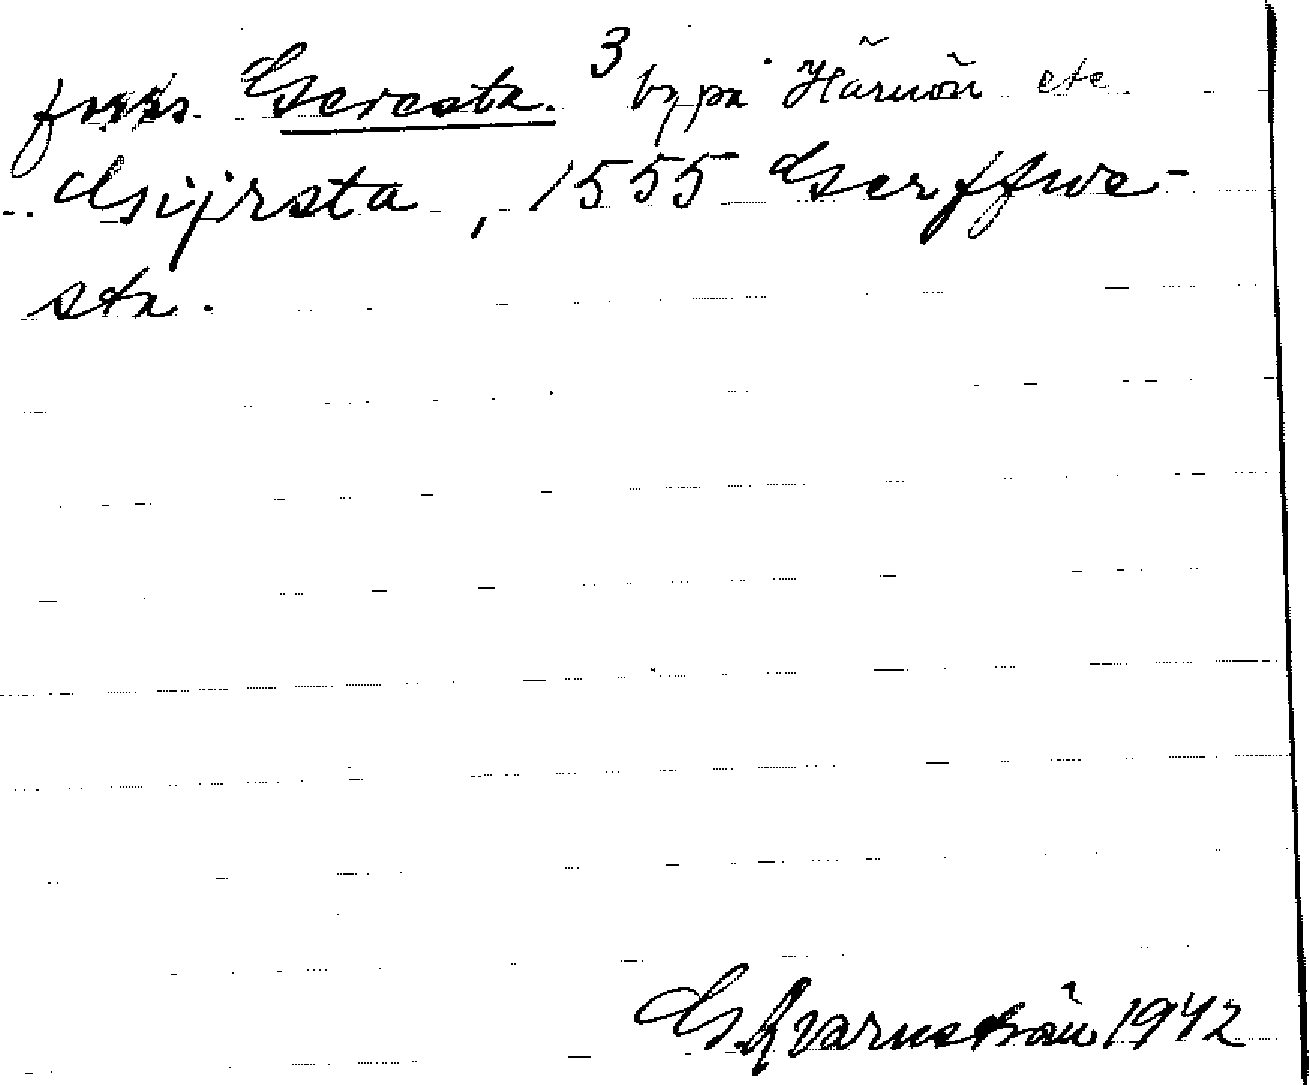 Geresta. 3 by på Härnön etc
Gijrsta, 1555 Gerffwe-
sta.
G Qvarnström 1942